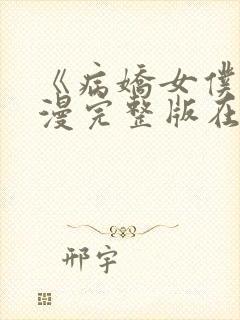 《病嬌女僕
漫完整版在
邢宇